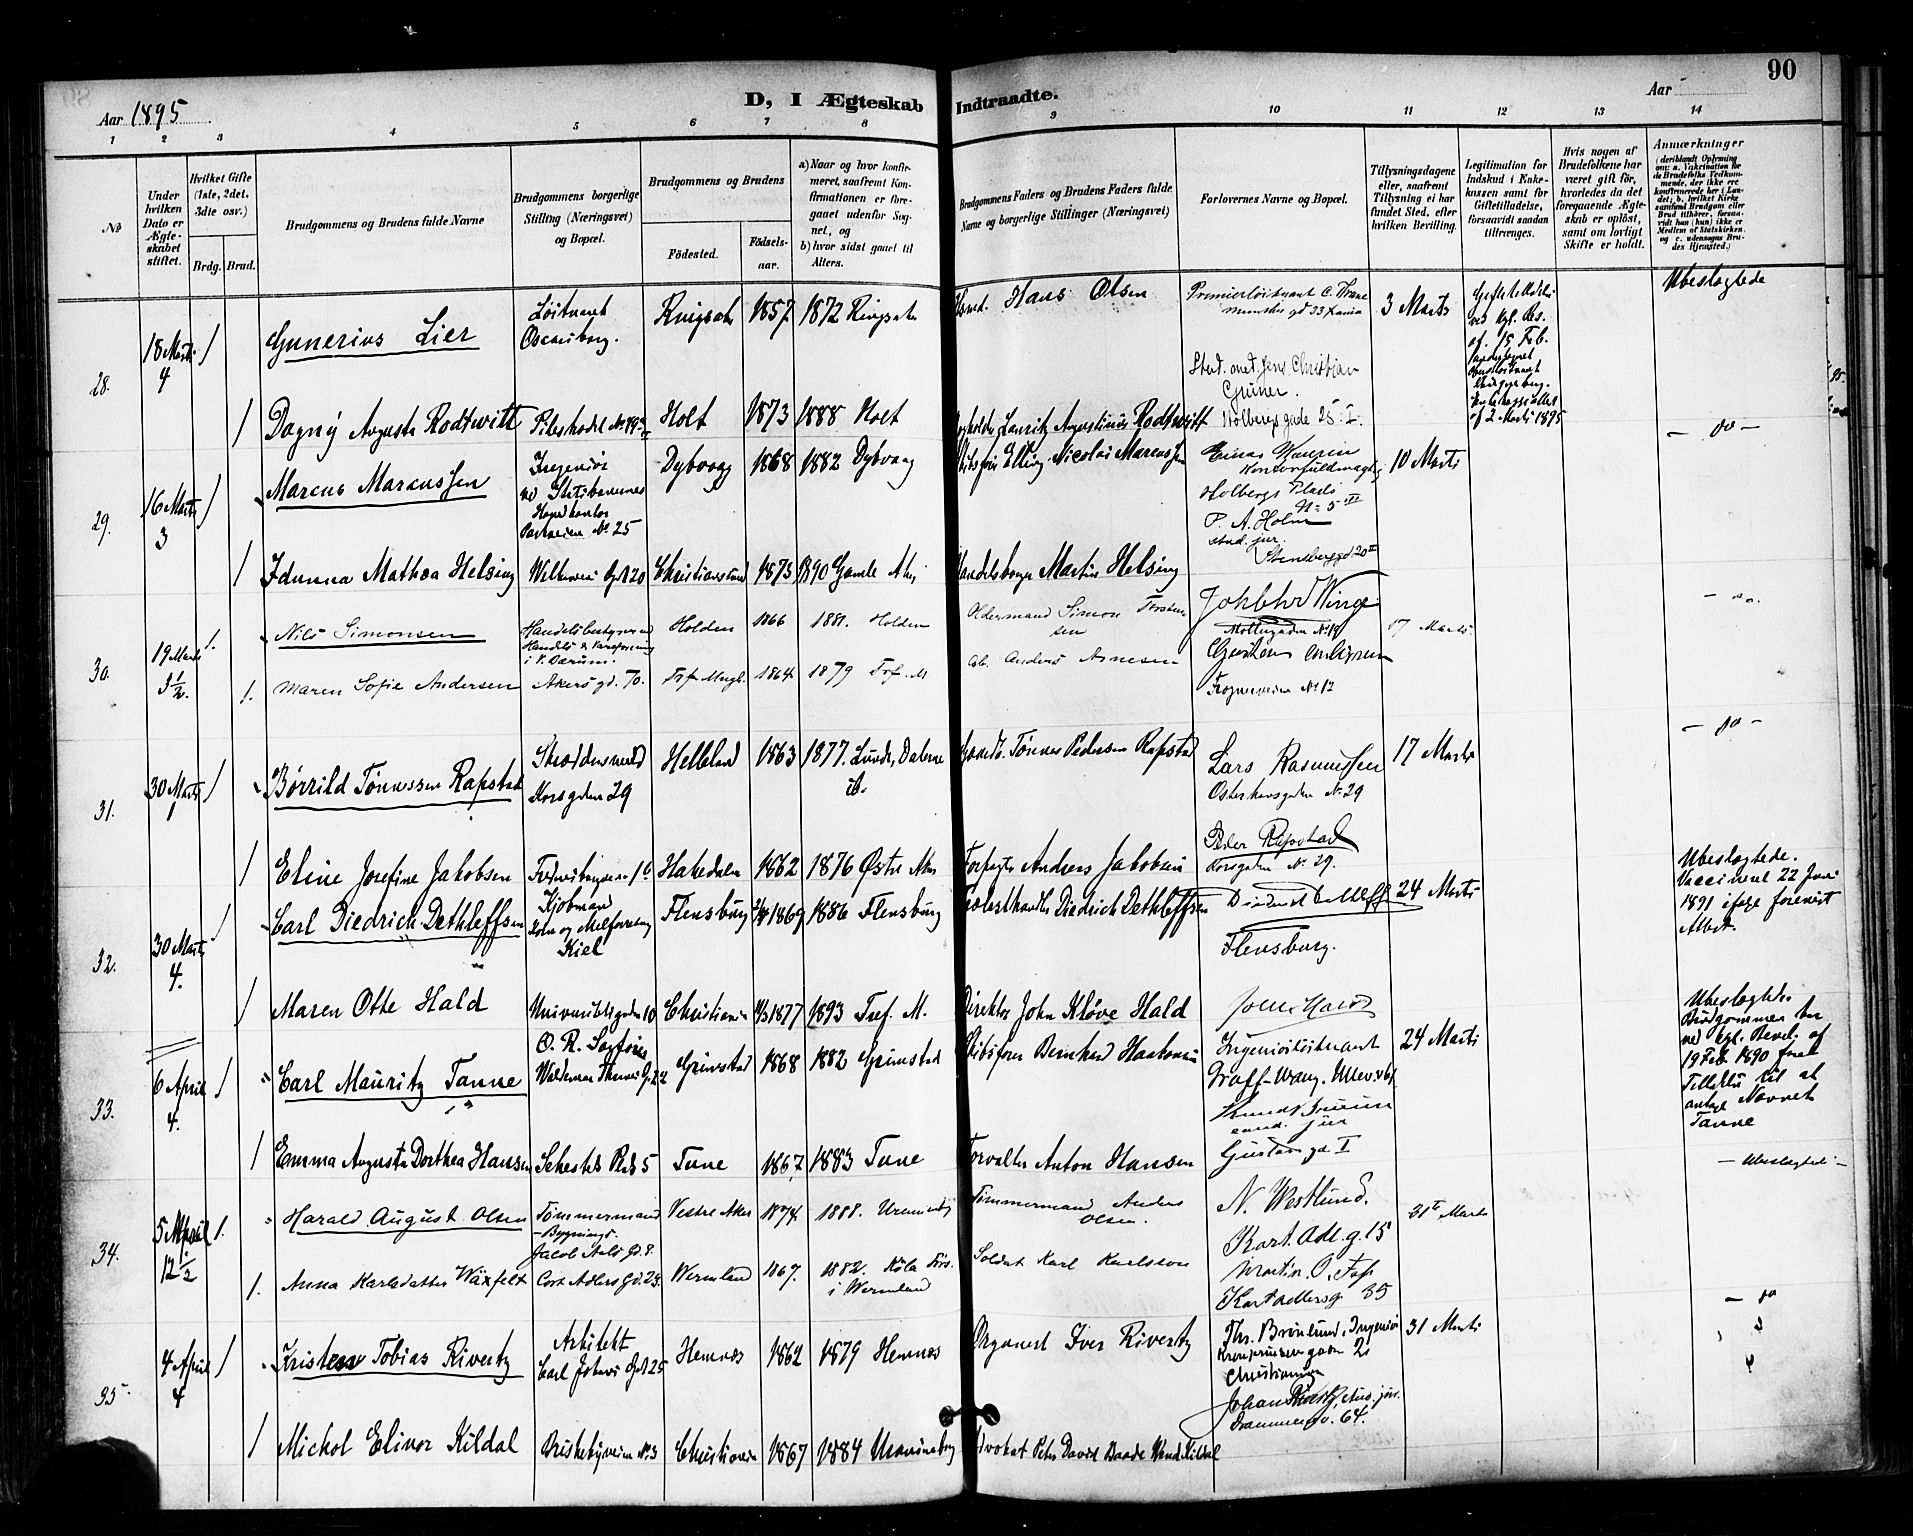 90
D, I Ægteskab Indtraadte.
Aar 1895
Aar
1 2 3 4 5 6 7 8 9 10 11 12 13 14
No
Under hvilken Dato er Ægteskabet stiftet.
Hvilket Gifte (1ste, 2det, 3die osv.)
Brdg. Brud.
Brudgommens og Brudens fulde Navne
Brudgommens borgerlige Stilling (Næringsvei) og Bopæl.
Brudgommens og Brudens
Fødested.
Fødselsaar.
a) Naar og hvor konfirmeret, saafremt Konfirmationen er foregaaet udenfor Sognet, og
b) hvor sidst gaaet til Alters.
Brudgommens Faders og Brudens Faders fulde Navne og borgerlige Stillinger (Næringsvei)
Forlovernes Navne og Bopæl.
Tillysningsdagene eller, saafremt Tillysning ei har fundet Sted, efter hvilken Bevilling.
Legitimation for Indskud i Enkekassen samt for Giftetilladelse, forsaavidt saadan tiltrænges.
Hvis nogen af Brudefolkene har været gift før, hvorledes da det foregaaende Ægteskab er opløst, samt om lovligt Skifte er holdt.
Anmærkninger
28.
18 Marts 4
1
Gunerius Lier
Løitnant Oscarsborg.
Ringsaker 1857 1872 Ringsaker
Hans Olsen
Premierløitnant C.
3 Marts
Ubeslægtede
Stud. med. Jens Christian Grüner.
Holbergsgade 25 I.
af 2 Marts 1895
1
Dagny Augusta Rodtwitt
Holt 1873 1888 Holt
Lauritz Augustinus Rodtwitt
29.
16 Marts 3
1
Marcus Marcussen
Ingeniør ved Statsbanernes Hovedkontor
Parkveien No 25
Dybvaag 1868 1882 Dybvaag
Skibsfører Elling Nicolai Marcussen
Einar
Kontorfuldmægtig
Holbergs Plads No 5
P. A. Holm
stud. jur.
Stensberggd 20
10 Marts
— do —
1
Idunna Mathea Helsing
Christianssund 1873 1890 Gamle Aker
Handelsborger Martin Helsing
30.
19 Marts 3 1/2
1.
Nils Simonsen
Handelsbestyrer
Holden 1866 1881. Holden
Oldermand Simon Torstensen
Winge
Møllergaden No 19
17 Marts
— do.
1.
Maren Sofie Andersen
Akersgd. 70.
Trf. Mngh. 1864. 1879 Trf. M
Anders Arnesen
Frognerveien No 12
31.
30 Marts 1
1
Børrild Tønnessen Rapstad
Skræddersvend
Korsgaden 29
Helleland 1863 1877. Lunde, Dalerne
ib.
Gaardb. Tønnes Pedersen Rapstad
Lars Rasmussen
Osterhausgaden No 29
17 Marts
— do —
1
Eline Josefine Jakobsen
Hakedalen 1862 1876 Østre Aker
Forpagter Anders Jakobsen
Peder Rapstad
Korsgaden No 29.
32.
30 Marts 4.
1
Carl Diedrich Dethleffsen
Kjøbmand
Korn og Melforretning
Kiel
Flensburg 1869 1886 Flensburg
Diedrich Dethleffsen
Flensburg.
24 Marts
Ubeslægtede.
Vaccineret 22 Juni 1891 ifølge forevist Attest.
1
Maren Otte Hald
Universitetsgaden 10
Christiania 1877 1893 Tref. M.
Direktør John Kløve Hald
John Hald
33.
6 April 4.
1
Carl Mauritz Tanne
O. R. Sagfører
Waldemar Thranes Gd 22
Grimstad 1868 1882 Grimstad
Skibsfører Bernhard
Ingeniørløitnant
Graff-Wang. Ullevv 61
cand. jur
Gustavsgd I
24 Marts
Ubeslægtede.
Brudgommen har ved kgl. Bevil. af 19 Feb. 1890 faaet Tilladelse til at antage Navnet Tanne
1
Emma Augusta Dorthea Hansen
Sehesteds Plads 5
Tune 1867 1883 Tune
Forvalter Anton Hansen
34.
5 April 12 1/2
1.
Harald August Olsen
Tømmermand
— Bygnings.
Jacob Aals Gd. 8.
Vestre Aker 1874. 1888. Uranienbg
Tømmermand Anders Olsen.
N. Westlund.
Kort. Adl. g. 15
Martin. O.
Kort adlersg 35
31te Marts
— Ubeslægtede —
1.
Anna Karlsdatter Wäxfelt
Cort Adlers Gd. 23
Wermland 1867. 1882. Köla Förs. i Wermland
Soldat Karl Karlsson
35.
4 April 4
1
Kristen Tobias Rivertz
Arkitekt
Carl Johans Gd 25
Hemnæs 1862 1879 Hemnæs
Organist Iver Rivertz
Thr. Brønlund, Ingeniør
Kronprinsensgaden 2
Christiania
Johan Rivertz, stud. jur.
Drammensv. 64.
31 Marts
— do
1
Michol Elinor Kildal
Briskebyveien No 3
Christiania 1867 1884 Uranienborg
Advokat Peter David Baade Wind Kildal